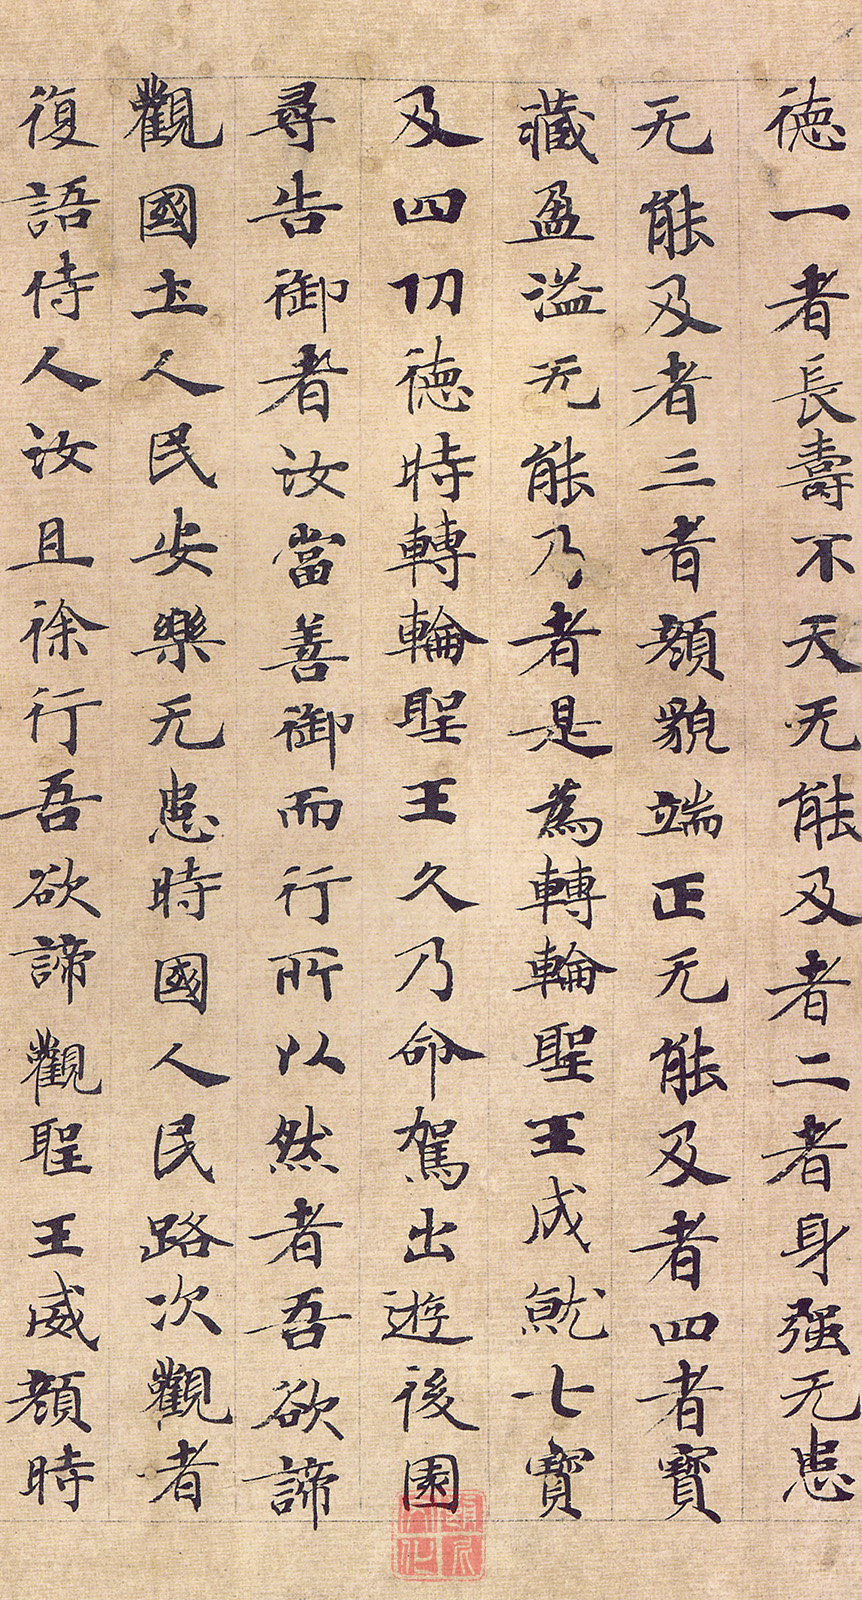 德一者長壽不夭无能及者二者身强无患
无能及者三者顔貌端正无能及者四者寶
藏盈溢无能乃者是為轉輪聖王成就七寶
及四㓛德時轉輪聖王久乃命駕出遊後園
尋告御者汝當善御而行所以然者吾欲諦
觀國土人民安樂无患時國人民路次觀者
復語侍人汝且徐行吾欲諦觀聖王威顔時